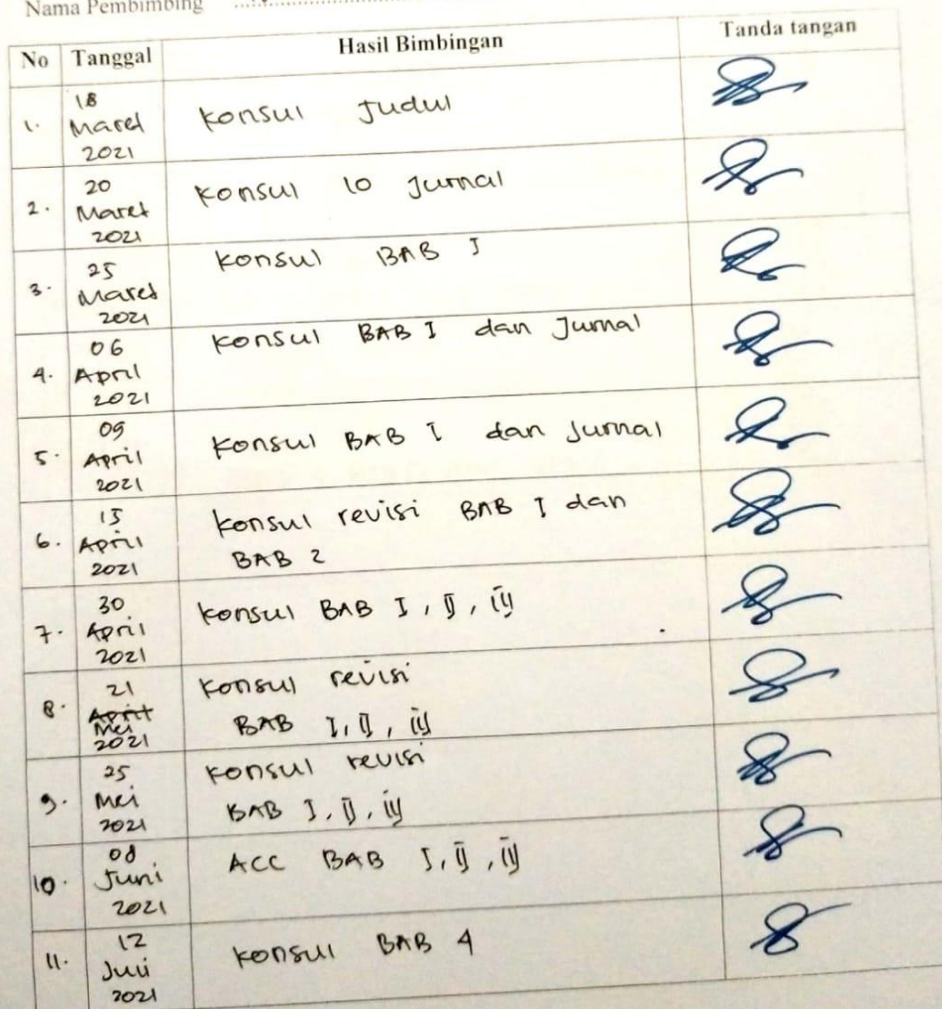 Nama Pembimbing
No Tanggal Hasil Bimbingan Tanda tangan
1. 18 Maret 2021 Konsul Judul
2. 20 Maret 2021 Konsul 10 Jurnal
3. 25 Maret 2021 Konsul BAB I
4. 06 April 2021 Konsul BAB I dan Jurnal
5. 09 April 2021 Konsul BAB I dan Jurnal
6. 15 April 2021 Konsul revisi BAB I dan
BAB 2
7. 30 April 2021 Konsul BAB I, II, III
8. 21 Mei 2021 Konsul revisi
BAB I, II, III
9. 25 Mei 2021 Konsul revisi
BAB I, II, III
10. 08 Juni 2021 ACC BAB I, II, III
11. 12 Juli 2021 Konsul BAB 4